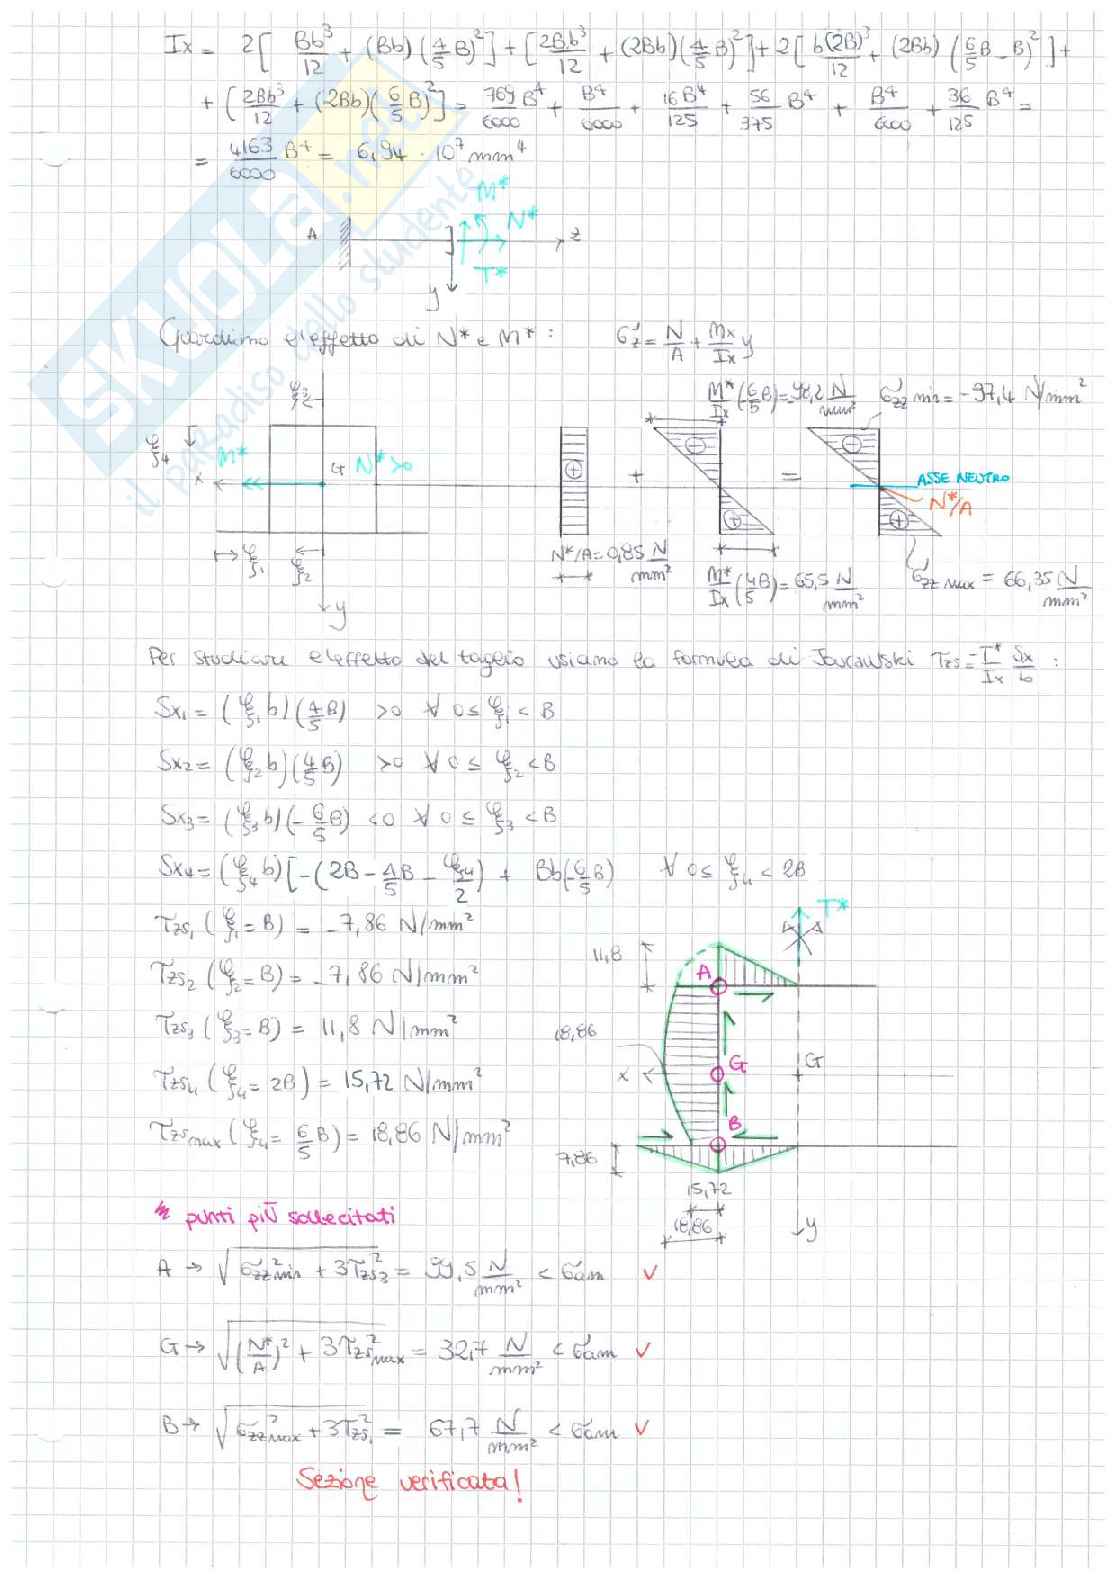 Ix = 2[ Bb³/12 + (Bb)(4/5 B)² ] + [ 2Bb³/12 + (2Bb)(4/5 B)² ] + 2[ b(2B)³/12 + (2Bb)(6/5 B - B)² ] +
+ [ 2Bb³/12 + (2Bb)(6/5 B)² ] = 769/6000 B⁴ + B⁴/6000 + 16B⁴/125 + 56/375 B⁴ + B⁴/6000 + 36/125 B⁴ =
= 4163/6000 B⁴ = 6,94 · 10⁷ mm⁴
SKUOLA.net
il paradiso dello studente
M*
N*
A
z
T*
y
Guardiamo l'effetto di N* e M* : σz = N/A + Mx/Ix y
M*/Ix (6/5 B) = 98,2 N/mm² σzz min = -97,4 N/mm²
ξ3
ξ4
M* G N*>0
x
+ =
ASSE NEUTRO
N*/A
ξ1 ξ2
N*/A = 0,85 N/mm²
M*/Ix (4/5 B) = 65,5 N/mm²
σzz max = 66,35 N/mm²
y
Per studiare l'effetto del taglio usiamo la formula di Jourawski τzs = -T*/Ix Sx/b :
Sx1 = (ξ1 b)(4/5 B) >0 ∀ 0≤ ξ1 < B
Sx2 = (ξ2 b)(4/5 B) >0 ∀ 0 ≤ ξ2 < B
Sx3 = (ξ3 b)(-6/5 B) <0 ∀ 0 ≤ ξ3 < B
Sx4 = (ξ4 b)[-(2B - 4/5 B - ξ4/2) + Bb(-6/5 B) ∀ 0≤ ξ4 < 2B
τzs1 (ξ1 = B) = -7,86 N/mm²
τzs2 (ξ2 = B) = -7,86 N/mm²
τzs3 (ξ3 = B) = 11,8 N/mm²
τzs4 (ξ4 = 2B) = 15,72 N/mm²
τzs max (ξ4 = 6/5 B) = 18,86 N/mm²
T*
11,8
A
18,86
x
G
G
B
7,86
15,72
18,86
y
punti più sollecitati
A → √(σzz²min + 3τzs3²) = 99,5 N/mm² < σam ✓
G → √((N*/A)² + 3τzs²max) = 32,7 N/mm² < σam ✓
B → √(σzz²max + 3τzs1²) = 67,7 N/mm² < σam ✓
Sezione verificata!